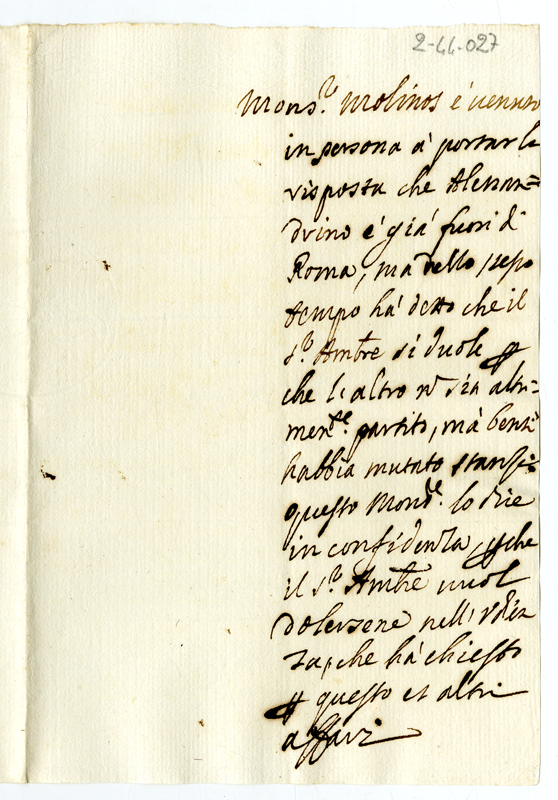 2-44-027
Mons.r Molinos è venuto
in persona à portar la
risposta che Alessan=
drino è già fuori di
Roma, mà nello stesso
tempo hà detto che il
s.r Ambre si duole
che l'altro nõ sia altri=
mente partito, mà bensi
habbia mutato stanza
questo Mons.re lo dice
in confidenza, che
il s.r Ambre vuol
dolersene nell'Udien
za, che hà chiesto
questo et altri
affari